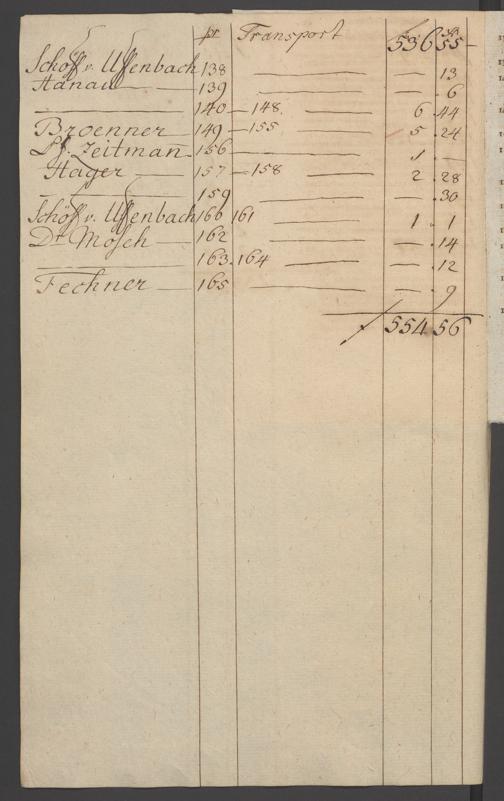 pr Transport 536 55
Schöff v. Uffenbach 138 — — 13
Hanau — 139 — — 6
— 140 — 148. — 6 . 44
Broenner — 149 — 155 — 5 . 24
Zeitman — 156 — 1 . —
Hager — 157 — 158 — 2 . 28
— 159 — — . 30
Schöff v. Uffenbach 160 161 — 1 . 1
Dr Mosch — 162 — — . 14
— 163 . 164 — — . 12
Fechner — 165 — — . 9
554 56